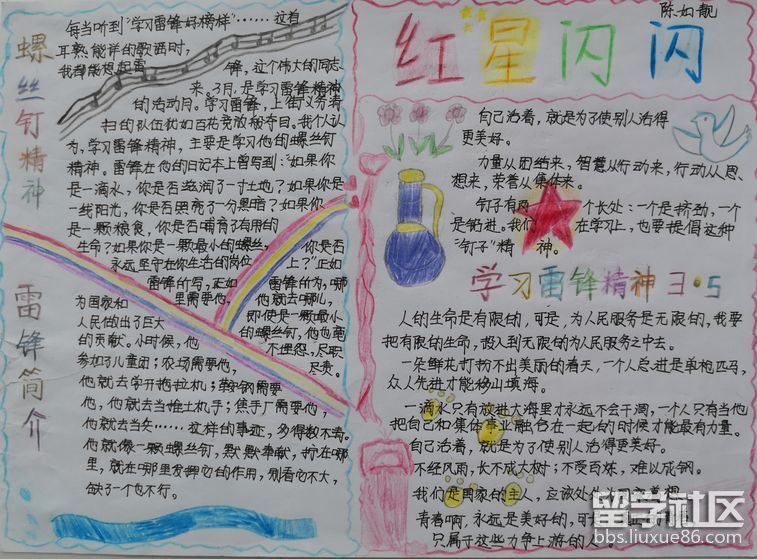 螺丝钉精神
每当听到"学习雷锋好榜样"……这首
耳熟能详的歌曲时,
我都能想起雷锋,这个伟大的同志
来。3月,是学习雷锋精神
的活动月。学习雷锋,上街义务清
扫的队伍犹如百花竞放般夺目。我个人认
为,学习雷锋精神,主要是学习他的螺丝钉
精神。雷锋在他的日记本上曾写到:"如果你
是一滴水,你是否滋润了一寸土地?如果你是
一线阳光,你是否照亮了一分黑暗?如果你
是一颗粮食,你是否哺育了有用的
生命?如果你是一颗最小的螺丝钉,你是否
永远坚守在你生活的岗位上?"正如
雷锋所写,正如雷锋所为,哪
里需要他,他就去哪儿,
即使是一颗最小
的螺丝钉,他也毫
不埋怨,尽职
尽责。
雷锋简介
为国家和
人民做出了巨大
的贡献。小时候,他
参加了儿童团;农场需要他,
他就去学开拖拉机;鞍钢需要
他,他就去当推土机手;焦子厂需要他,
他就去当矣……这样的事迹,多得数不清。
他就像一颗螺丝钉,默默奉献,拧在哪
里,就在哪里发挥它的作用,别看它不大,
缺了一个也不行。
陈如靓
红星闪闪
自己活着,就是为了使别人活得
更美好。
力量从团结来,智慧从行动来,行动从思
想来,荣誉从集体来。
钉子有两个长处:一个是挤劲,一个
是钻进。我们在学习上,也要提倡这种
"钉子"精神。
学习雷锋精神3·5
人的生命是有限的,可是,为人民服务是无限的,我要
把有限的生命,投入到无限的为人民服务之中去。
一朵鲜花打扮不出美丽的春天,一个人总进是单枪匹马,
众人先进才能移山填海。
一滴水只有放进大海里才永远不会干涸,一个人只有当他
把自己和集体事业融合在一起的时候才能最有力量。
自己活着,就是为了使别人活得更美好。
不经风雨,长不成大树;不受百炼,难以成钢。
我们是国家的主人,应该处处
青春啊,永远是美好的,可
只属于这些力争上游的人
留学社区
bbs.liuxue86.com